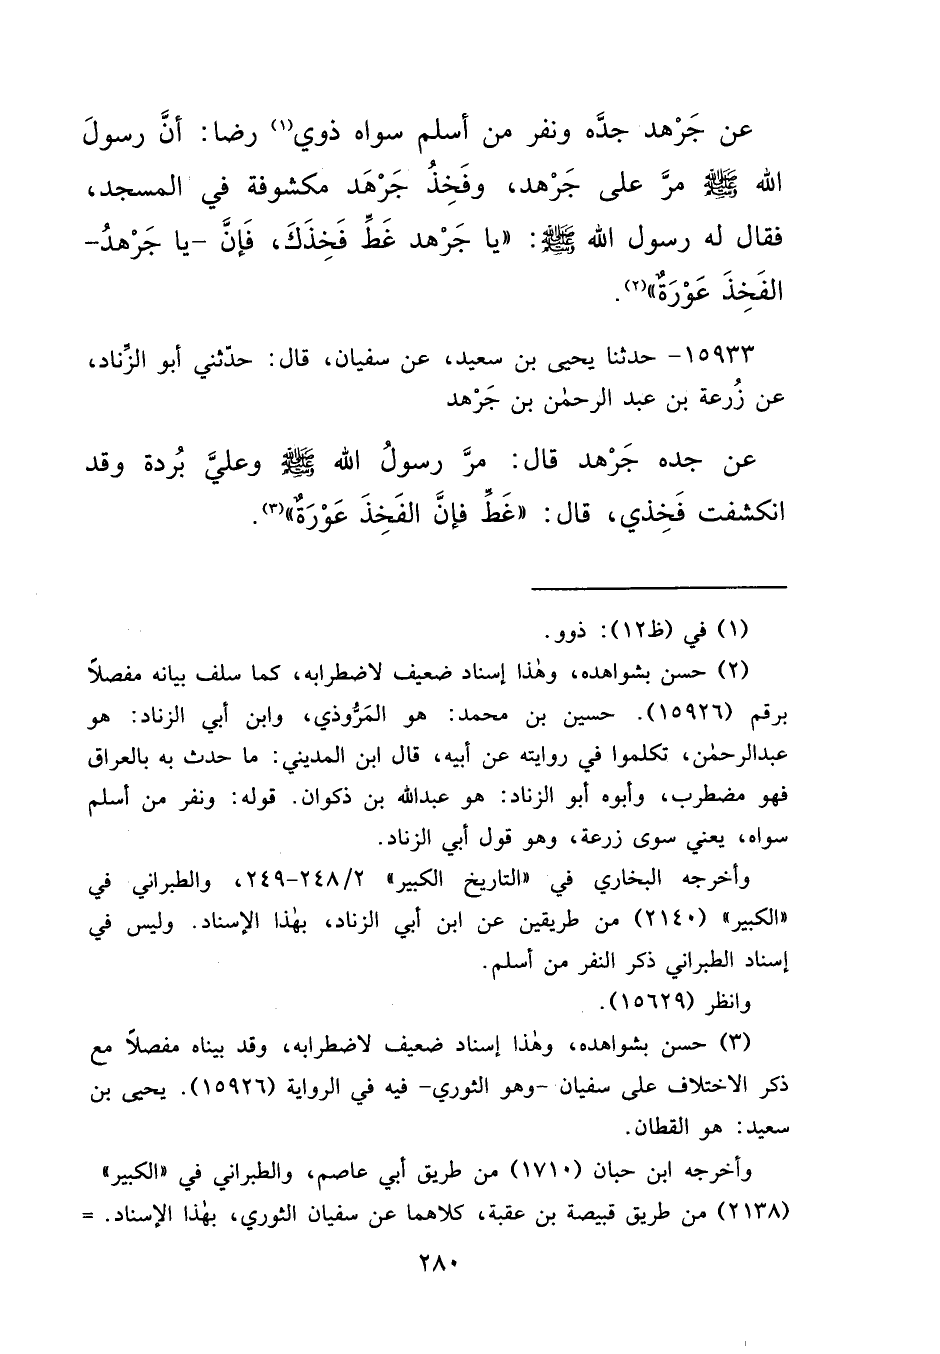 عن جَرْهد جدَّه ونفر من أسلم سواه ذوي(١) رضا: أنَّ رسولَ
الله ﷺ مرَّ على جَرْهد، وفَخِذُ جَرْهَد مكشوفة في المسجد،
فقال له رسول الله ﷺ: «يا جَرْهد غَطِّ فَخِذَكَ، فَإنَّ -يا جَرْهدُ-
الفَخِذَ عَوْرَةٌ»(٢).
١٥٩٣٣- حدثنا يحيى بن سعيد، عن سفيان، قال: حدّثني أبو الزِّناد،
عن زُرعة بن عبد الرحمٰن بن جَرْهد
عن جده جَرْهد قال: مرَّ رسولُ الله ﷺ وعليَّ بُردة وقد
انكشفت فَخِذي، قال: «غَطِّ فإنَّ الفَخِذَ عَوْرَةٌ»(٣).
(١) في (ظ١٢): ذوو.
(٢) حسن بشواهده، وهٰذا إسناد ضعيف لاضطرابه، كما سلف بيانه مفصلاً
برقم (١٥٩٢٦). حسين بن محمد: هو المَرُّوذي، وابن أبي الزناد: هو
عبدالرحمٰن، تكلموا في روايته عن أبيه، قال ابن المديني: ما حدث به بالعراق
فهو مضطرب، وأبوه أبو الزناد: هو عبدالله بن ذكوان. قوله: ونفر من أسلم
سواه، يعني سوى زرعة، وهو قول أبي الزناد.
وأخرجه البخاري في «التاريخ الكبير» ٢٤٨/٢-٢٤٩، والطبراني في
«الكبير» (٢١٤٠) من طريقين عن ابن أبي الزناد، بهٰذا الإسناد. وليس في
إسناد الطبراني ذكر النفر من أسلم.
وانظر (١٥٦٢٩).
(٣) حسن بشواهده، وهٰذا إسناد ضعيف لاضطرابه، وقد بيناه مفصلاً مع
ذكر الاختلاف على سفيان -وهو الثوري- فيه في الرواية (١٥٩٢٦). يحيى بن
سعيد: هو القطان.
وأخرجه ابن حبان (١٧١٠) من طريق أبي عاصم، والطبراني في «الكبير»
(٢١٣٨) من طريق قبيصة بن عقبة، كلاهما عن سفيان الثوري، بهٰذا الإسناد. =
٢٨٠